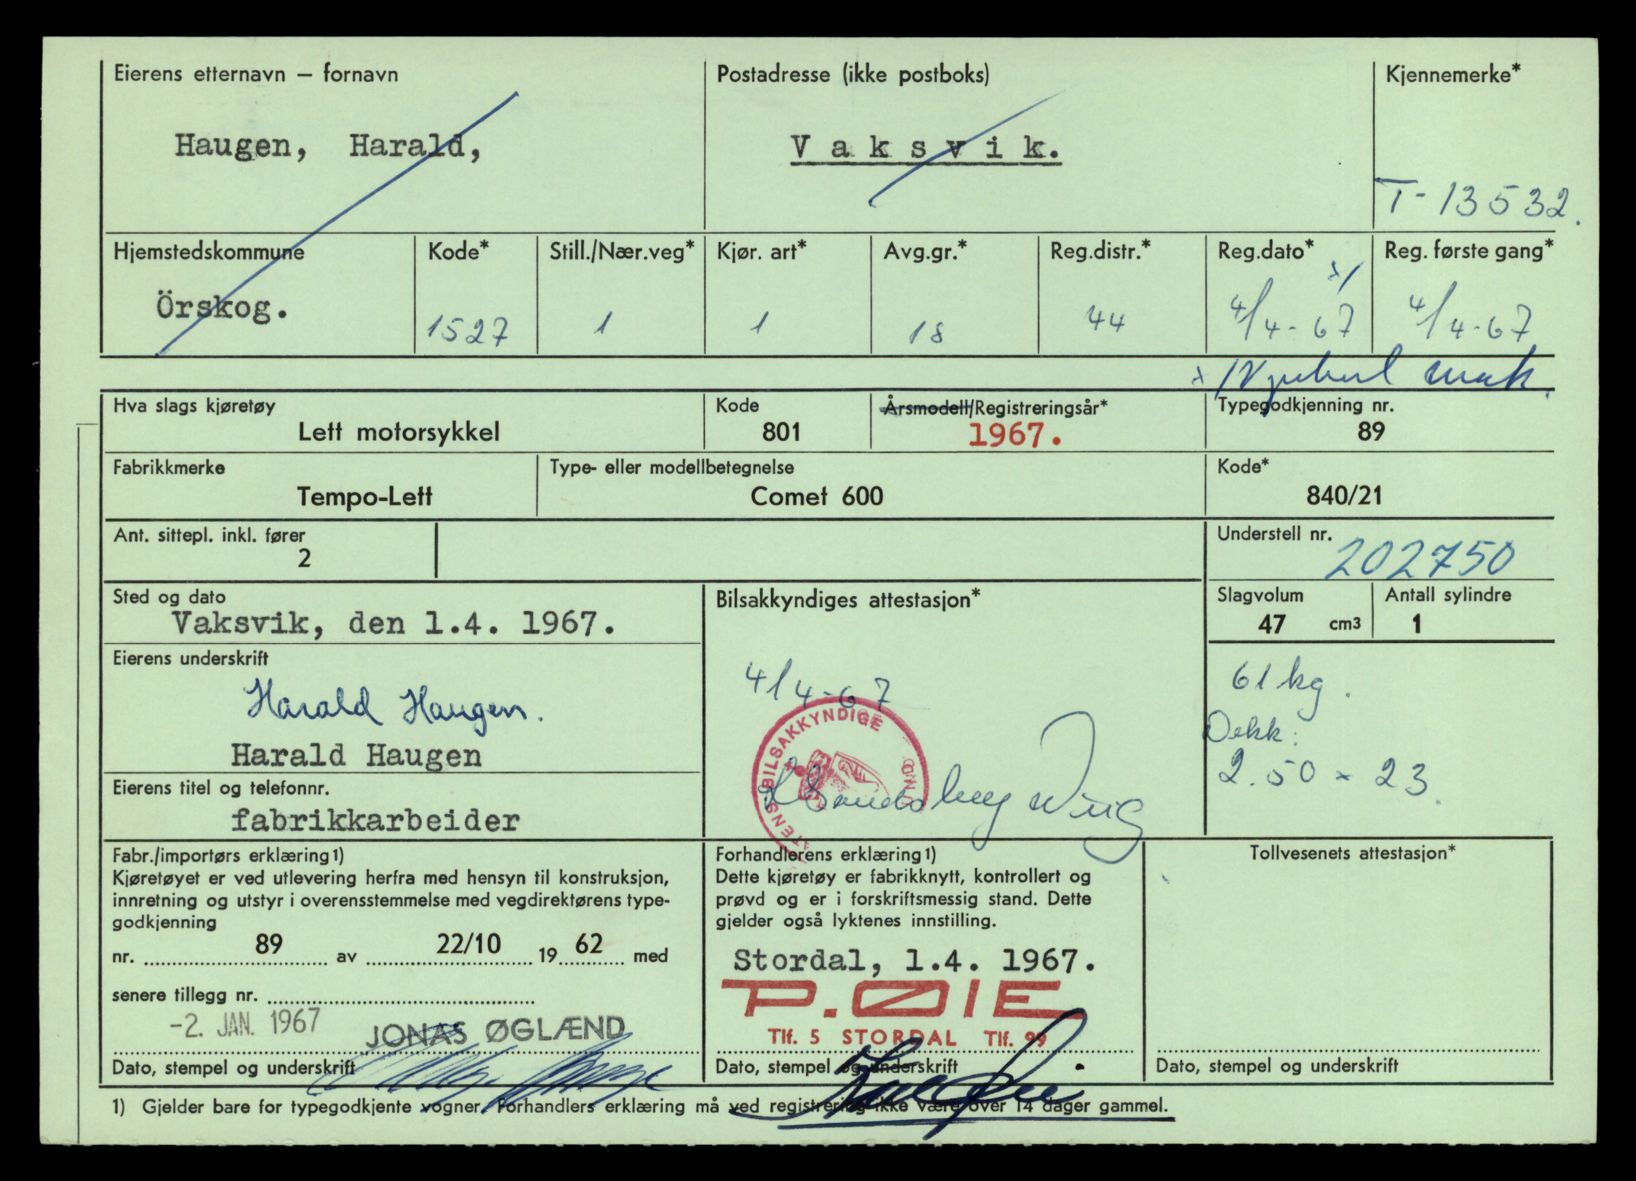 Eierens etternavn — fornavn
Haugen, Harald,
Postadresse (ikke postboks)
Vaksvik.
Kjennemerke*
T-13532.
Hjemstedskommune
Örskog.
Kode*
1527
Still./Nær.veg*
1
Kjør. art*
1
Avg.gr.*
18
Reg.distr.*
44
Reg.dato*
4/4-67
Reg. første gang*
4/4-67
Hva slags kjøretøy
Lett motorsykkel
Kode
801
Årsmodell/Registreringsår*
1967.
Typegodkjenning nr.
89
Fabrikkmerke
Tempo-Lett
Type- eller modellbetegnelse
Comet 600
Kode*
840/21
Ant. sittepl. inkl. fører
2
Understell nr.
202750
Sted og dato
Vaksvik, den 1.4. 1967.
Bilsakkyndiges attestasjon*
Slagvolum
47 cm3
Antall sylindre
1
Eierens underskrift
Harald Haugen.
Harald Haugen
4/4-67
BILSAKKYNDIGE
61 kg.
Dekk:
2.50 x 23.
Eierens titel og telefonnr.
fabrikkarbeider
Fabr./importørs erklæring1)
Kjøretøyet er ved utlevering herfra med hensyn til konstruksjon,
innretning og utstyr i overensstemmelse med vegdirektørens type-
godkjenning
nr. 89 av 22/10 19 62 med
senere tillegg nr.
-2. JAN. 1967
JONAS ØGLÆND
Dato, stempel og underskrift
Forhandlerens erklæring1)
Dette kjøretøy er fabrikknytt, kontrollert og
prøvd og er i forskriftsmessig stand. Dette
gjelder også lyktenes innstilling.
Stordal, 1.4. 1967.
P. ØIE
Tlf. 5 STORDAL Tlf. 99
Dato, stempel og underskrift
Tollvesenets attestasjon*
Dato, stempel og underskrift
1) Gjelder bare for typegodkjente vogner. Forhandlers erklæring må ved registrering ikke være over 14 dager gammel.